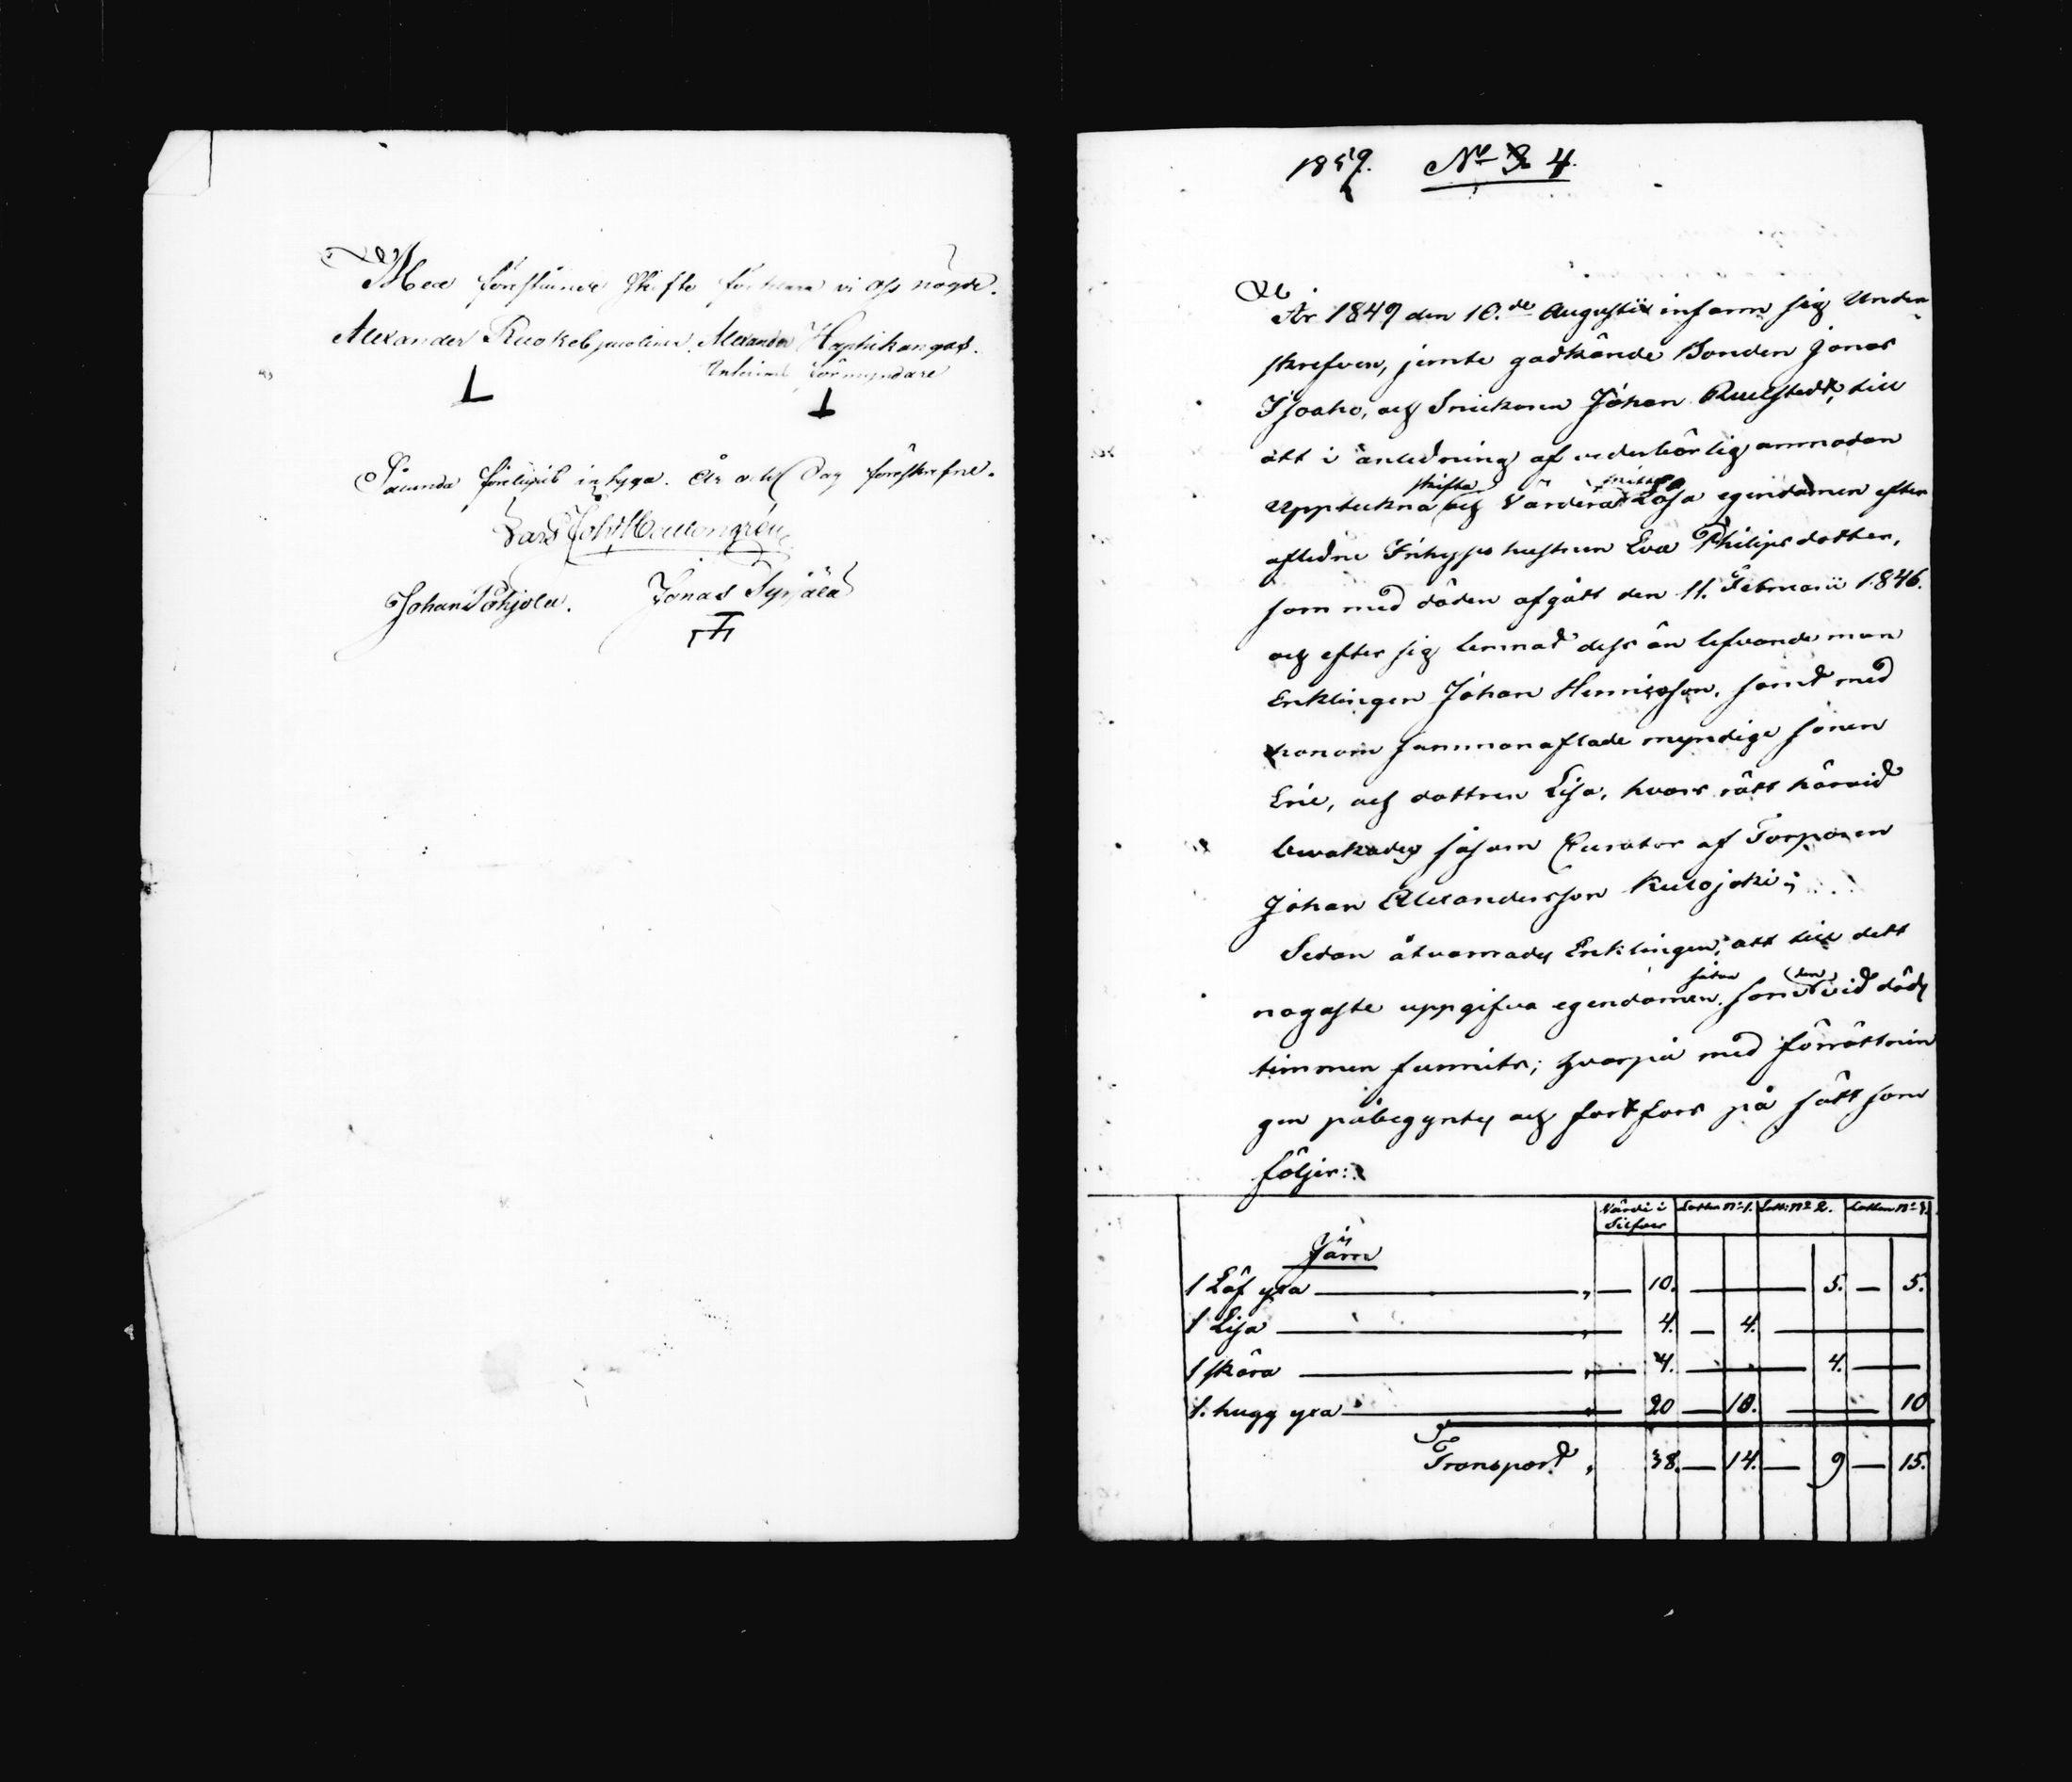 Med förestående skifte förklara vi oss nögde.
Alexander Alexander Haghikangas.
Interims Förmyndare
Sålunda förelupit intyga. År och Dag förskrefne.
Lars Joh
Johan Pohjola. Jonas Syrjälä
1849. No 3 4.
År 1849 den 10.de Augusti infann sig Under-
skrefven, jemte godkände Bonden Jonas
Isoaho, och Snickaren Johan till
att i anledning af vederbörlig anmodan
skifta
uppteckna och Värdera Lösa egendomen efter
aflidne Inhyses hustrun Eva Philipsdotter,
som med döden afgått den 11. Februarii 1846.
och efter sig lemnat dess än lefvande man
Enklingen Johan Henricsson, samt med
honom sammanaflade myndige sonen
Eric, och dottren Lisa, hvars rätt härvid
bevakades såsom Curator af Torparen
Johan Alexandersson Kulojoki;
Sedan åtvarnades Enklingen, att till dett
sådan den
nogaste uppgifva egendomen, som vid döds
timmen funnits; hvarpå med förrättnin
gen påbegyntes och fortfors på sätt som
följer:
Värde i Silfver Lotten No 1. Lott: No 2. Lotten No 3.
Järn
1 Löf yxa — 10. — 5. — 5.
1 Lija — 4. — 4. —
1 skära — 4. — 4. —
1. hugg yxa — 20 — 10. — 10
Transport, 38. — 14. — 9 — 15.